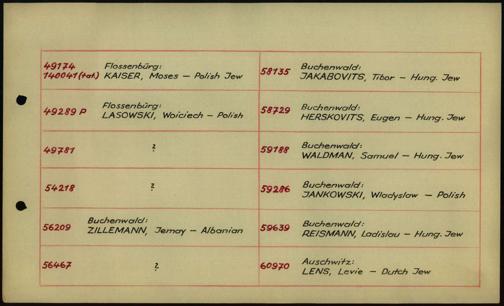 49174 Flossenbürg:
140041(tat) KAISER, Moses – Polish Jew
49289 P Flossenbürg:
LASOWSKI, Woiciech – Polish
49781 ?
54218 ?
56209 Buchenwald:
ZILLEMANN, Jemay – Albanian
56467 ?
58135 Buchenwald:
JAKABOVITS, Tibor – Hung. Jew
58729 Buchenwald:
HERSKOVITS, Eugen – Hung. Jew
59188 Buchenwald:
WALDMAN, Samuel – Hung. Jew
59286 Buchenwald:
JANKOWSKI, Wladyslaw – Polish
59639 Buchenwald:
REISMANN, Ladislau – Hung. Jew
60970 Auschwitz:
LENS, Levie – Dutch Jew